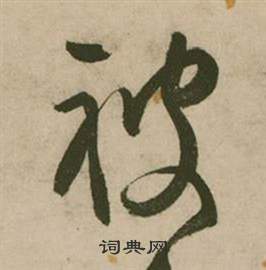 被
词典网